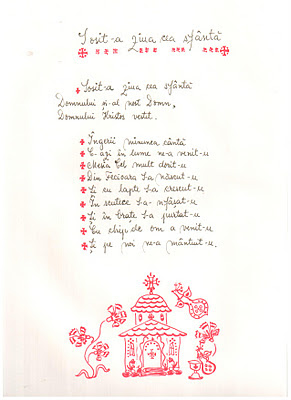 Sosit-a ziua cea sfântă
Sosit-a ziua cea sfântă
Domnului și-al nost Domn,
Domnului Hristos vestit.
Îngerii minunea cântă
C-azi în lume ne-a venit-u
Mesia Cel mult dorit-u
Din Fecioara S-a născut-u
Și cu lapte L-a crescut-u
În scutece L-a-nfășat-u
Și în brațe L-a purtat-u
Cu chip de om a venit-u
Și pe noi ne-a mântuit-u.